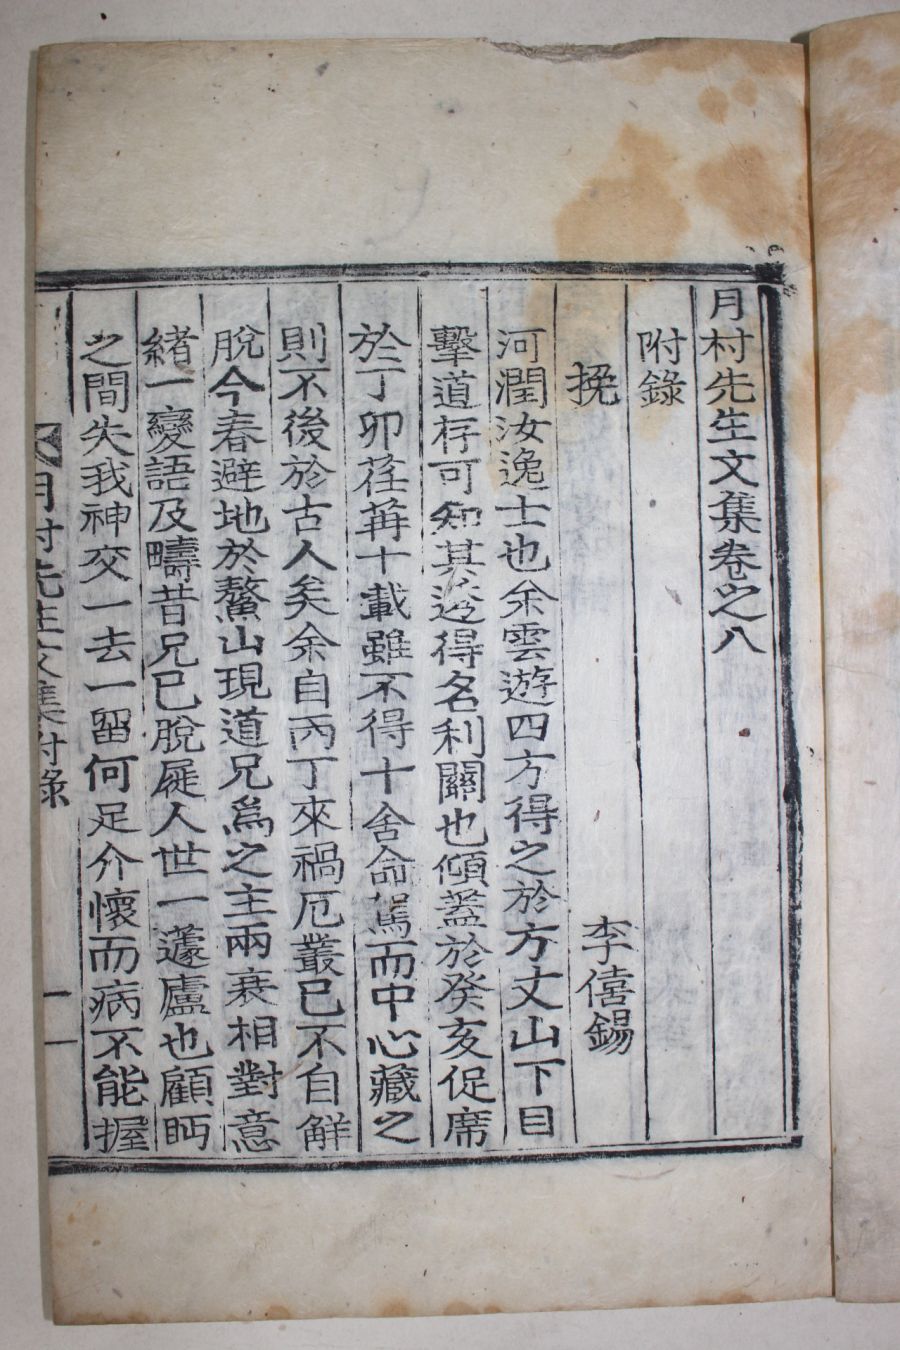 月村先生文集卷之八
附錄
挽 李僖錫
河潤汝逸士也余雲遊四方得之於方丈山下目
擊道存可知其透得名利關也傾蓋於癸亥促席
於丁卯荏苒十載雖不得十舍命駕而中心藏之
則不後於古人矣余自丙丁來禍厄叢已不自鮮
脫今春避地於鰲山現道兄爲之主兩衰相對意
緖一變語及疇昔兄已脫屣人世一蘧廬也顧眄
之間失我神交一去一留何足介懷而病不能握
月村先生文集 附錄 一